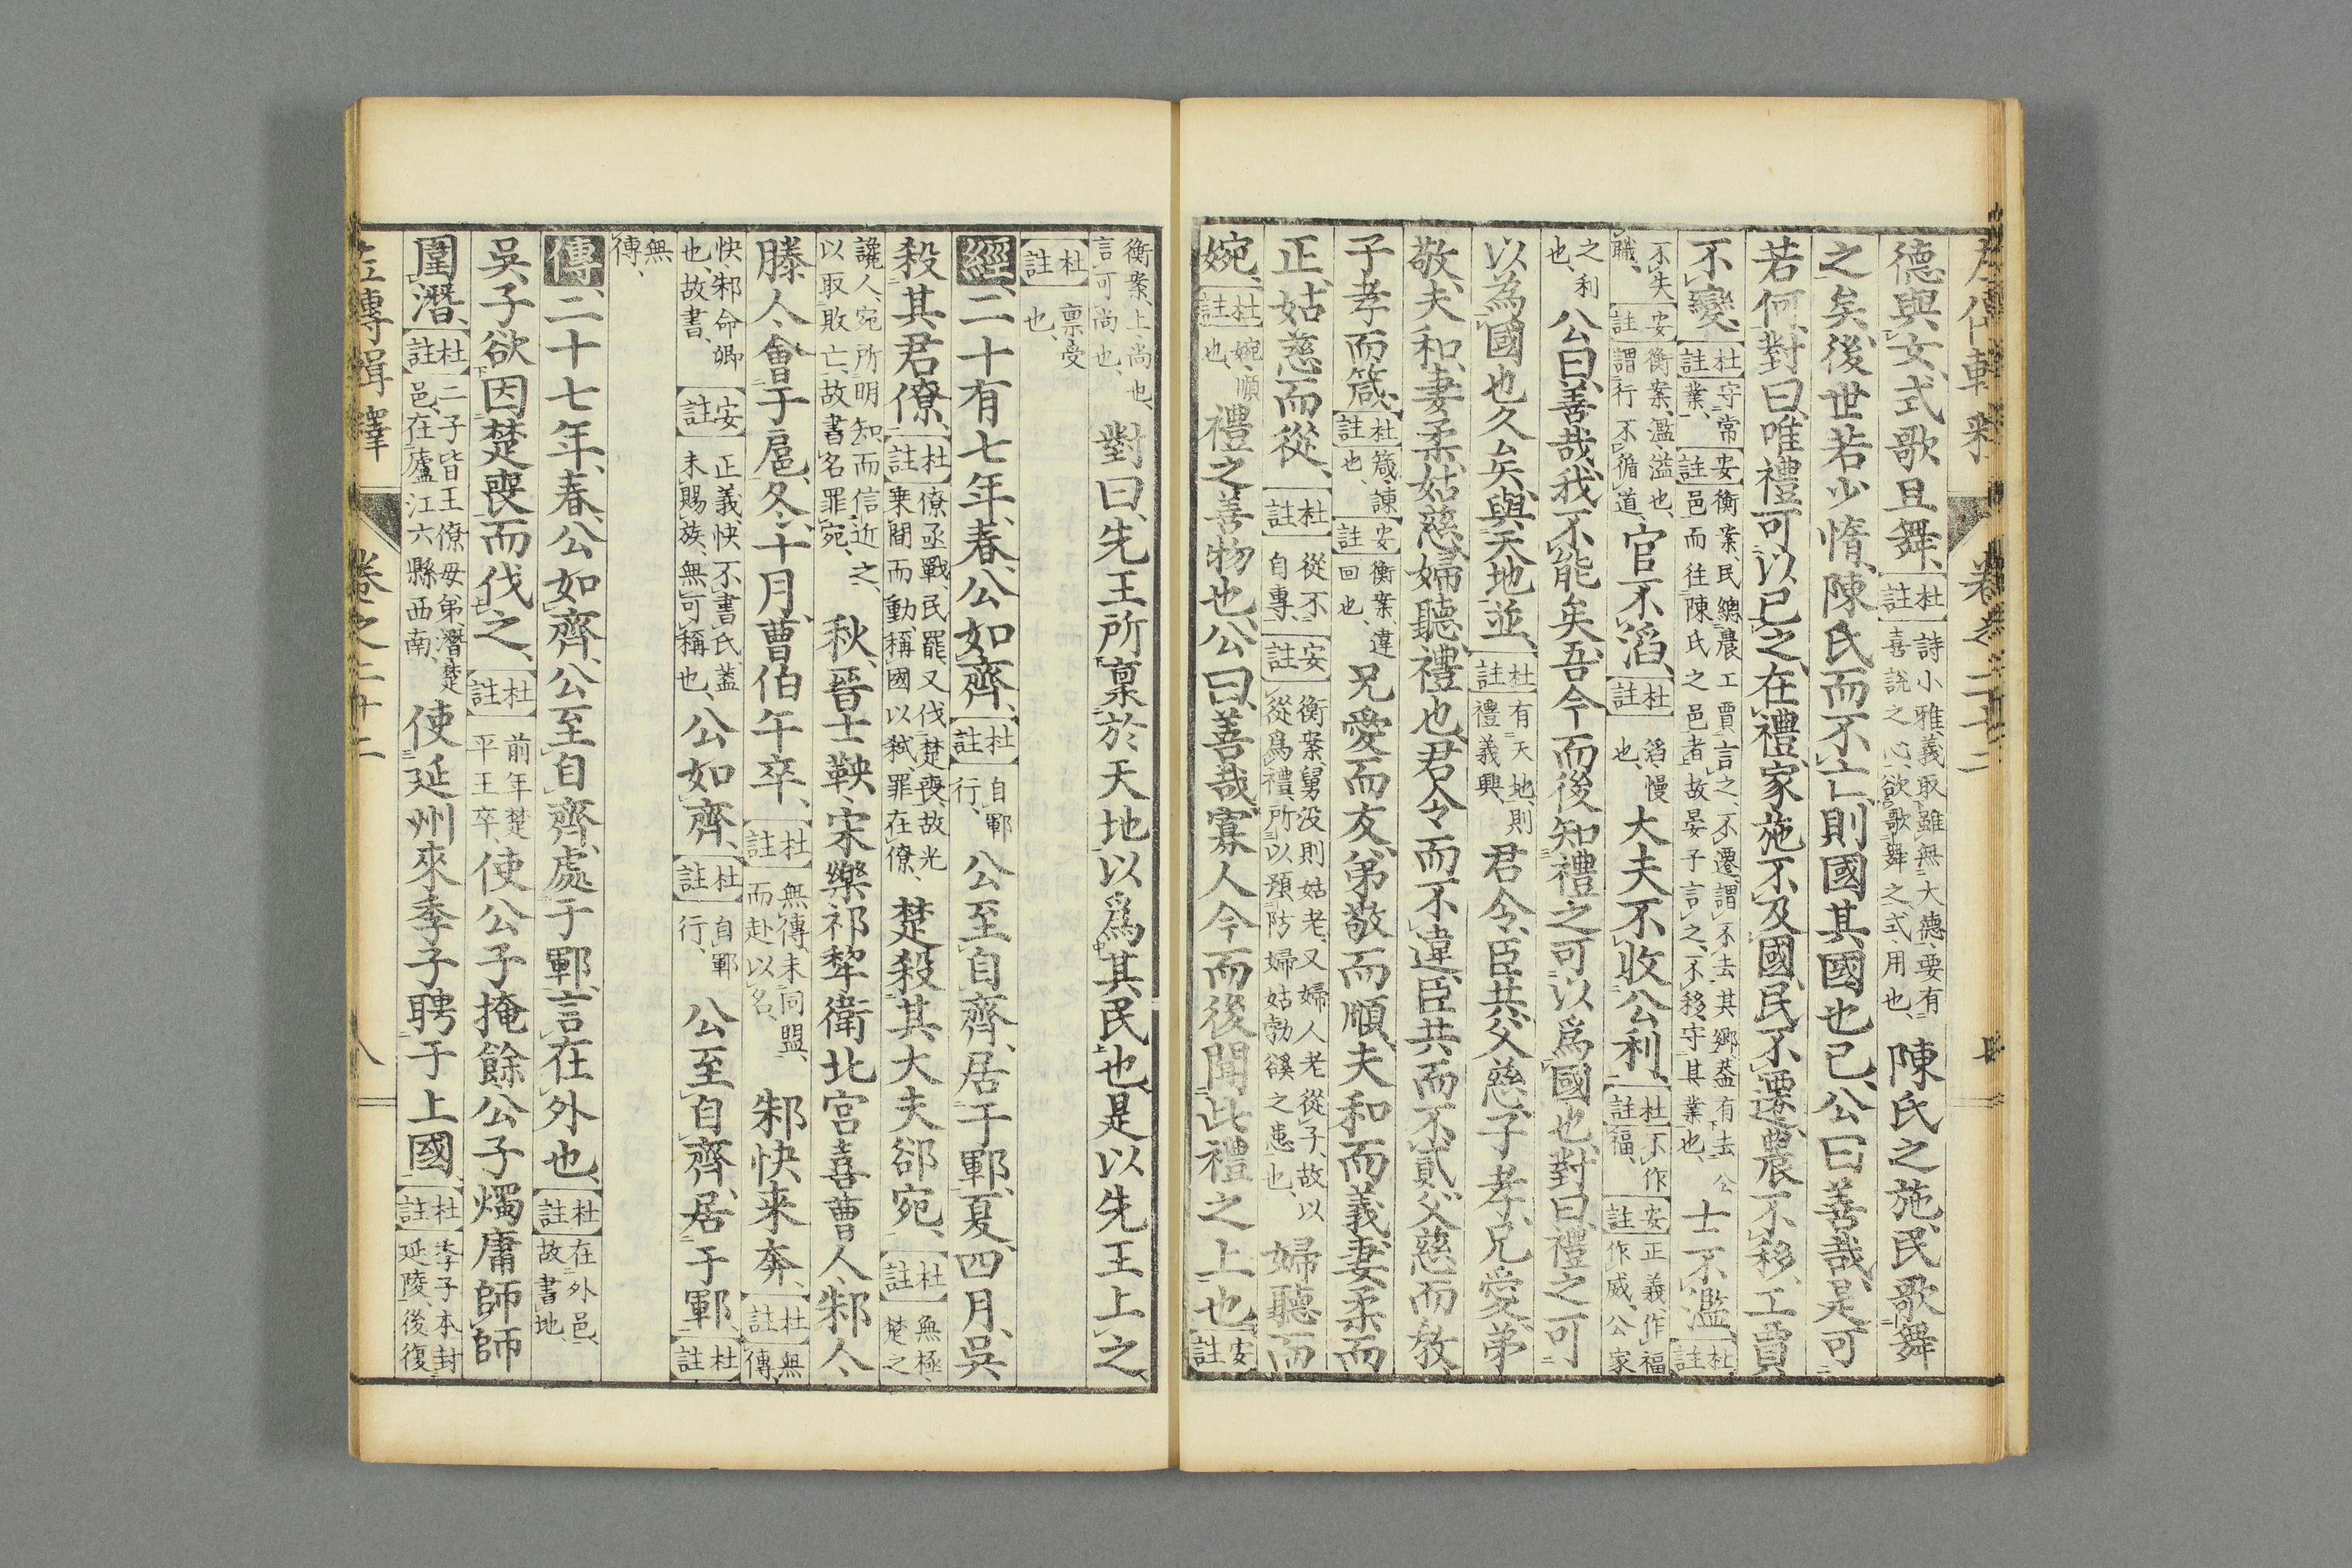 德與女式歌且舞、杜註詩小雅義取雖無大德、要有喜說之心欲歌舞之式、用也、陳氏之施民歌舞
之矣後世若少惰陳氏而不亡則國其國也已公曰善哉是可
若何對曰唯禮可以已之在禮家施不及國民不遷農不移工賈
不變杜註守常業、安註衡案、民總農工賈言之、不遷、謂不去其鄉、蓋有去公邑而往陳氏之邑者、故晏子言之、不移、守其業也、士不濫杜註
不失職、安註衡案、濫、溢也、謂行不循道、官不滔、杜註滔、慢也、大夫不收公利、杜註不作福、安註正義、作福作威、公家
之利也、公曰善哉我不能矣吾今而後知禮之可以爲國也對曰禮之可
以為國也久矣與天地並、杜註有天地、則禮義興、君令臣共父慈子孝兄愛弟
敬夫和妻柔姑慈婦聽禮也君令而不違臣共而不貳父慈而教、
子孝而箴、杜註箴、諫也、安註衡案、違回也、兄愛而友弟敬而順夫和而義妻柔而
正姑慈而從、杜註從不自專、安註衡案、舅沒則姑老、又婦人老從子、故以從爲禮、所以預防婦姑勃谿之患也、婦聽而
婉、杜註婉、順也、禮之善物也公曰善哉寡人今而後聞此禮之上也安註
衡案、上尚也、言可尚也、對曰先王所稟於天地以爲其民也是以先王上之、
杜註稟、受也、
經二十有七年春公如齊、杜註自鄆行、公至自齊居于鄆夏四月吳
殺其君僚、杜註僚亟戰民罷、又伐楚喪、故光乘間而動、稱國以弒、罪在僚、楚殺其大夫郤宛、杜註無極、楚之
讒人、宛所明知、而信近之、以取敗亡、故書名罪宛、秋晉士鞅宋樂祁犂衛北宮喜曹人邾人
滕人會于扈冬十月曹伯午卒、杜註無傳、未同盟、而赴以名、邾快來奔、杜註無傳、
快邾命卿也、故書、安註正義、快不書氏、蓋未賜族、無可稱也、公如齊、杜註自鄆行、公至自齊居于鄆、杜註
無傳、
傳二十七年春公如齊公至自齊處于鄆言在外也、杜註在外邑、故書地、
吳子欲因楚喪而伐之、杜註前年楚平王卒、使公子掩餘公子燭庸帥師
圍潛、杜註二子皆王僚母弟、潛楚邑、在廬江六縣西南、使延州來季子聘于上國、杜註季子本封延陵、後復
左傳輯釋 卷之二十二 八